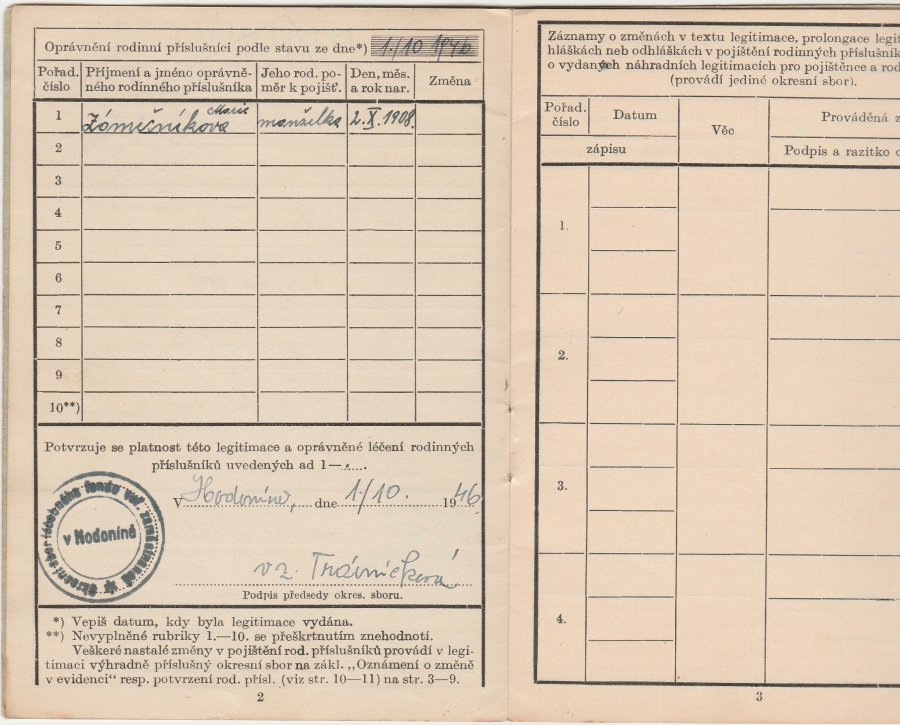 Oprávnění rodinní příslušníci podle stavu ze dne*) 1./10 1946
Pořad. číslo
Příjmení a jméno oprávně-
ného rodinného příslušníka
Jeho rod. po-
měr k pojišť.
Den, měs.
a rok nar.
Změna
1 Zámečníková Marie manželka 2. X. 1908.
2
3
4
5
6
7
8
9
10**)
Potvrzuje se platnost této legitimace a oprávněné léčení rodinných
příslušníků uvedených ad 1—
V Hodoníně, dne 1./10. 1946
Okresní sbor léčebného fondu veř. zaměstnanců
v Hodoníně
vz. Trávníčková
Podpis předsedy okres. sboru.
*) Vepiš datum, kdy byla legitimace vydána.
**) Nevyplněné rubriky 1.—10. se přeškrtnutím znehodnotí.
Veškeré nastalé změny v pojištění rod. příslušníků provádí v legi-
timaci výhradně příslušný okresní sbor na zákl. „Oznámení o změně
v evidenci“ resp. potvrzení rod. přísl. (viz str. 10—11) na str. 3—9.
2
Záznamy o změnách v textu legitimace, prolongace legit
hláškách neb odhláškách v pojištění rodinných příslušník
o vydaných náhradních legitimacích pro pojištěnce a rod
(provádí jediné okresní sbor).
Pořad.
číslo
Datum
Věc
Prováděná z
zápisu
Podpis a razítko o
1.
2.
3.
4.
3